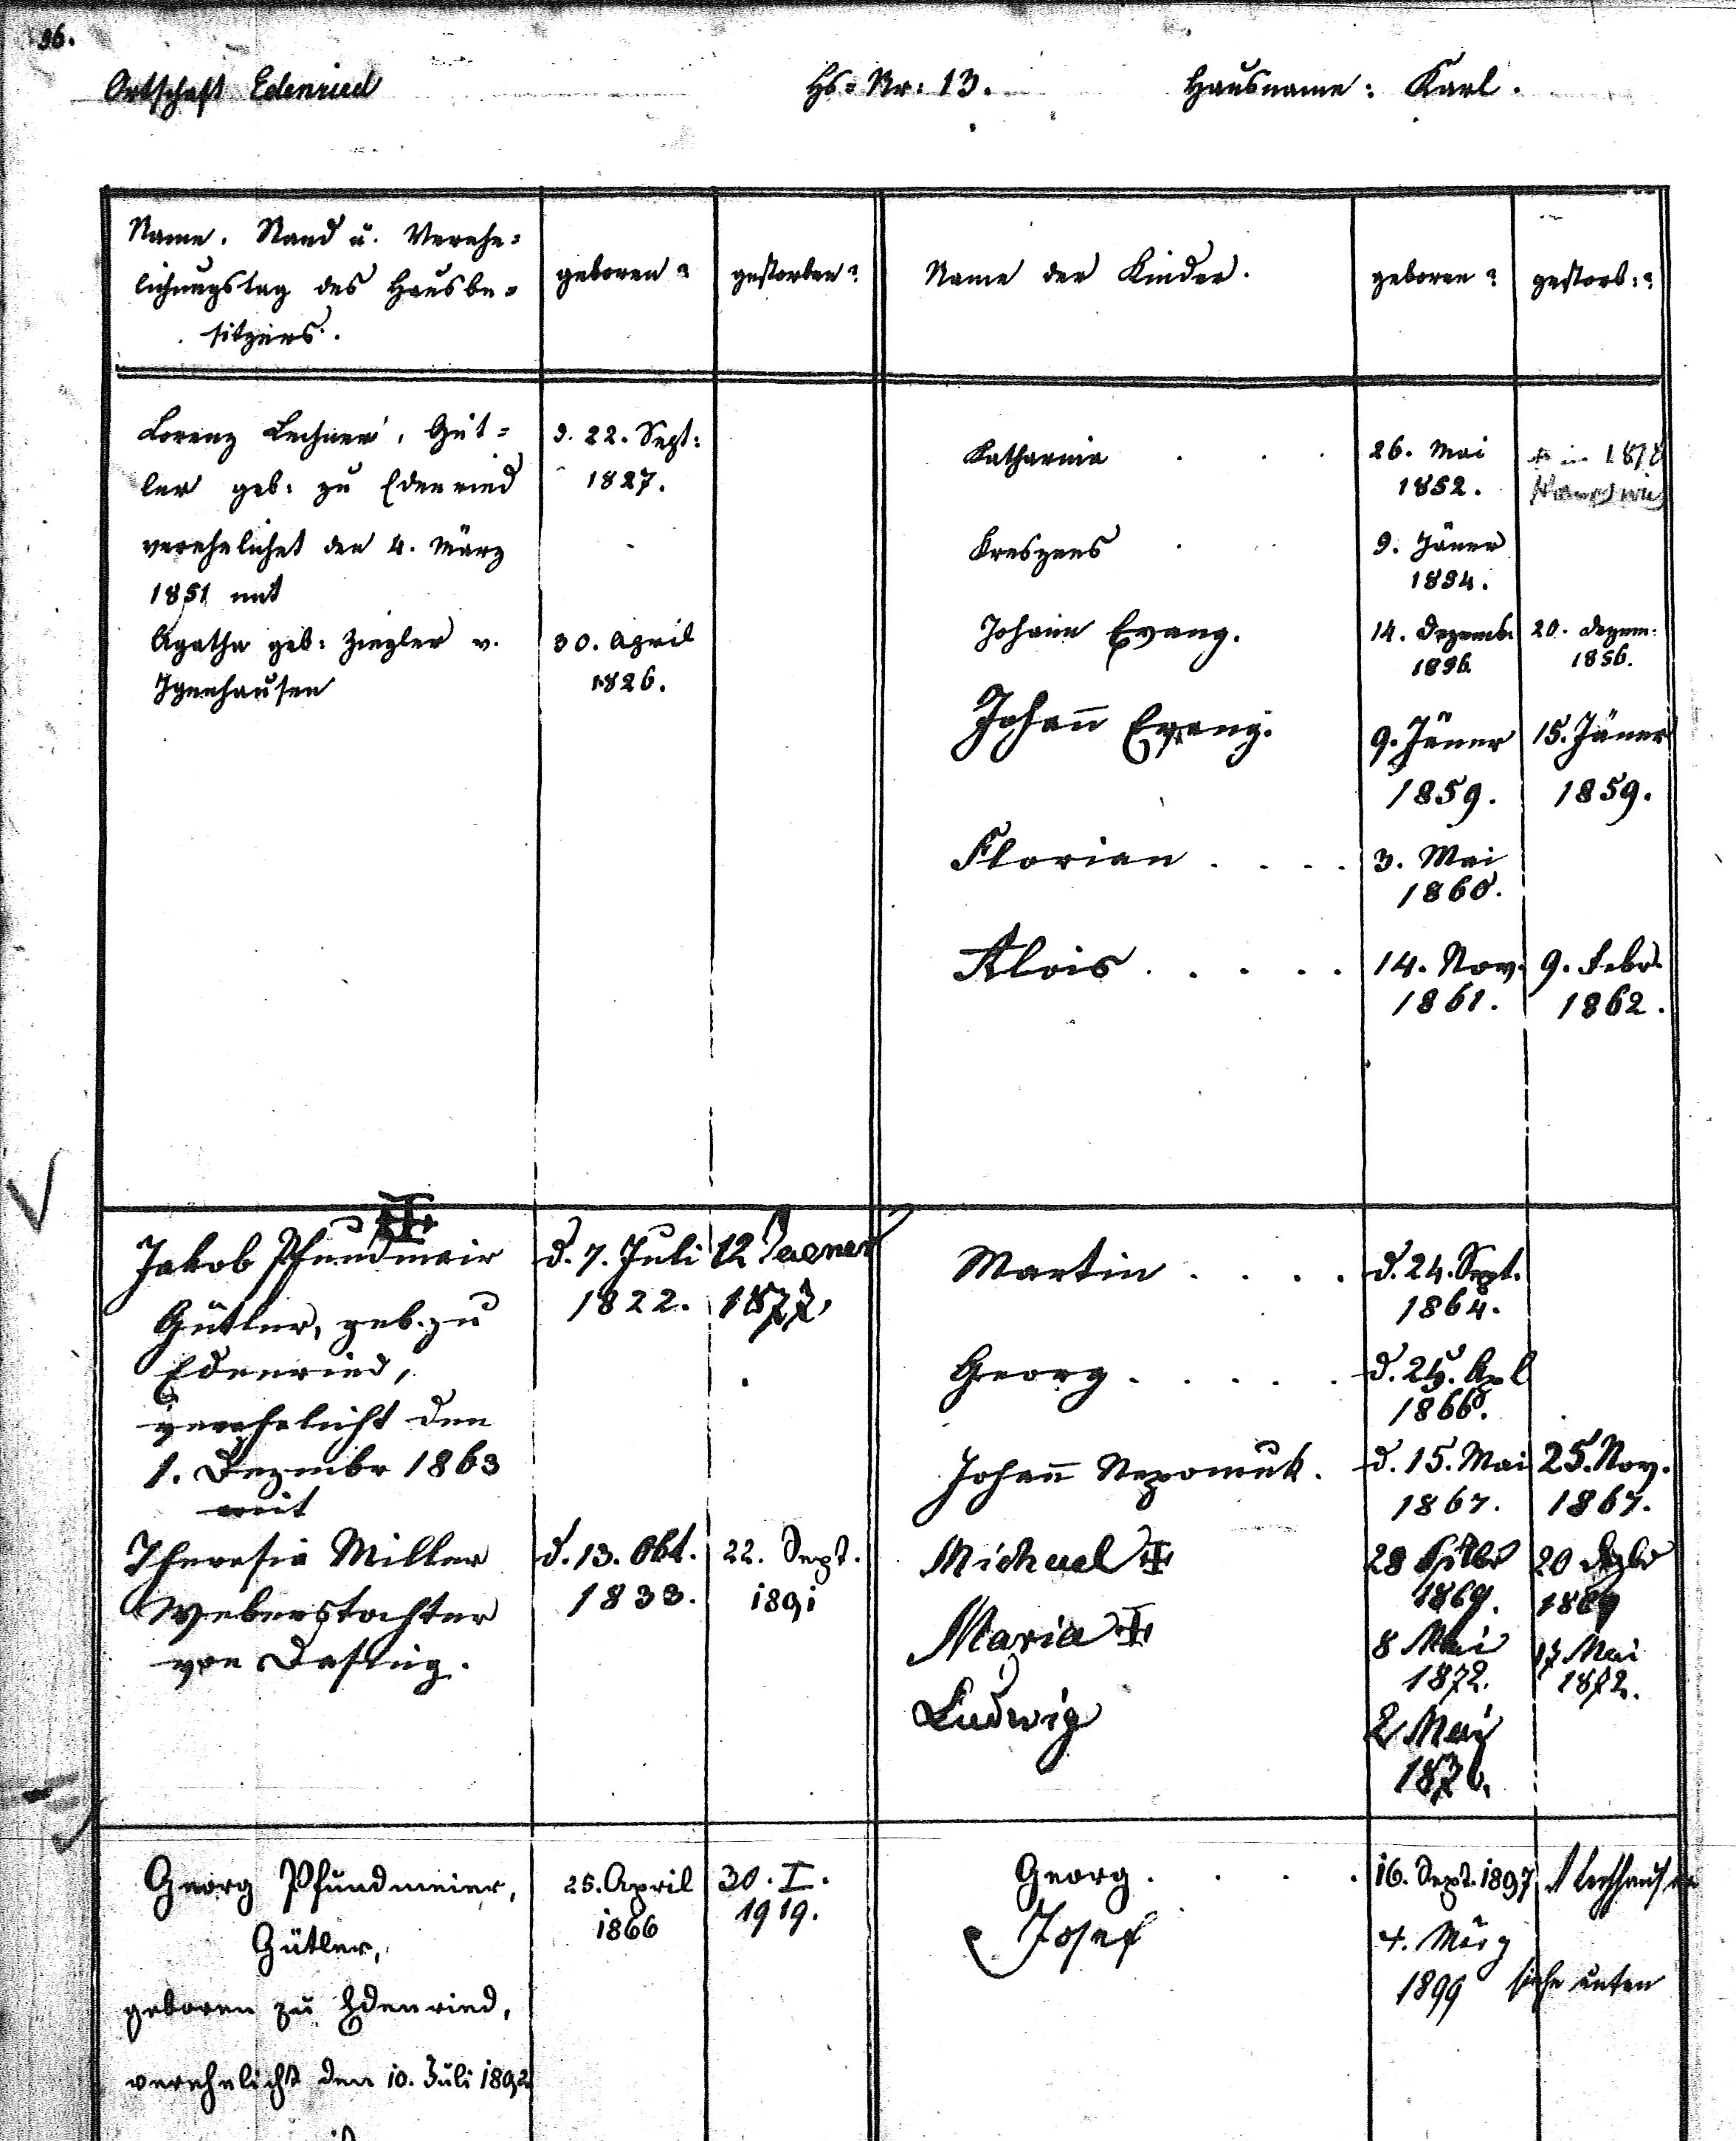 36.
Ortschaft Edenried Hs=Nr: 13. Hausname: Karl.
Name, Stand u. Verehe=
lichungstag des Hausbe=
sitzers.
geboren?
gestorben?
Name der Kinder.
geboren?
gestorb:?
Lorenz Lechner, Güt=
ler geb: zu Edenried
verehelichet den 4. März
1851 mit
Agatha geb: Ziegler v.
Igenhausen
d. 22. Sept:
1827.
30. April
1826.
Katharina . . . 26. Mai
1852.
in 1878
Kreszens . . 9. Jäner
1854.
Johann Evang. 14. Dezemb. 20. Dezem:
1856. 1856.
Johann Evang. 9. Jäner 15. Jäner
1859. 1859.
Florian . . . . 3. Mai
1860.
Alois . . . . . 14. Nov. 9. Febr.
1861. 1862.
Jakob Pfundmair
Gütler, geb. zu
Edenried,
verehelicht den
1. Dezember 1863
mit
Theresia Miller
Weberstochter
von Dasing.
d. 7. Juli 12 Jaener
1822. 1877.
d. 13. Okt. 22. Sept.
1833. 1891
Martin . . . . d. 24. Sept.
1864.
Georg . . . . . d. 25. Apl
1866.
Johann Nepomuk. d. 15. Mai 25. Nov.
1867. 1867.
Michael 28 20 Dezbr
1869. 1869
Maria 8 Mai 17 Mai
1872. 1872.
Ludwig 2 Mai
1876.
Georg Pfundmeier,
Gütler,
geboren zu Edenried,
verehelicht den 10. Juli 1892
25. April 30. I.
1866 1919.
Georg . . . . 16. Sept. 1897 Lechhausen
Josef 4. März
1899 siehe unten